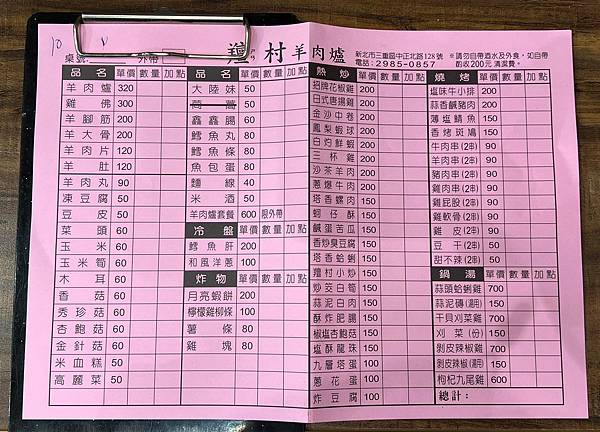 10 ∨
桌號: 外帶
羶村羊肉爐
新北市三重區中正北路128號
電話:2985-0857
※請勿自帶酒水及外食，如自帶
酌收200元清潔費。
品名 單價 數量 加點
羊肉爐 320
雞佛 300
羊腳筋 200
羊大骨 200
羊肉片 120
羊肚 120
羊肉丸 90
凍豆腐 50
豆皮 50
菜頭 60
玉米 60
玉米筍 60
木耳 60
香菇 60
秀珍菇 60
杏鮑菇 60
金針菇 60
米血糕 50
高麗菜 50
品名 單價 數量 加點
大陸妹 50
茼蒿 50
鑫鑫腸 60
鱈魚丸 80
鱈魚條 80
魚包蛋 80
麵線 40
米酒 50
羊肉爐套餐 600 限外帶
冷盤 單價 數量 加點
鱈魚肝 200
和風洋蔥 100
炸物 單價 數量 加點
月亮蝦餅 200
檸檬雞柳條 100
薯條 80
雞塊 80
熱炒 單價 數量 加點
招牌花椒雞 200
日式唐揚雞 200
金沙中卷 200
鳳梨蝦球 200
白灼鮮蝦 200
三杯雞 200
沙茶羊肉 200
蔥爆牛肉 200
塔香螺肉 150
蚵仔酥 150
鹹蛋苦瓜 150
香炒臭豆腐 150
塔香蛤蜊 150
羶村小炒 150
炒茭白筍 150
蒜泥白肉 150
酥炸肥腸 150
椒塩杏鮑菇 150
塩酥龍珠 150
九層塔蛋 100
蔥花蛋 100
炸豆腐 100
燒烤 單價 數量 加點
塩味牛小排 200
蒜香鹹豬肉 200
薄塩鯖魚 150
香烤斑鳩 150
牛肉串(2串) 90
羊肉串(2串) 90
豬肉串(2串) 90
雞肉串(2串) 90
雞屁股(2串) 90
雞軟骨(2串) 90
雞皮(2串) 50
豆干(2串) 50
甜不辣(2串) 50
鍋湯 單價 數量 加點
蒜頭蛤蜊雞 700
蒜泥磚(湯用) 150
干貝刈菜雞 700
刈菜(份) 150
剝皮辣椒雞 700
剝皮辣椒(湯用) 150
枸杞九尾雞 600
總計: